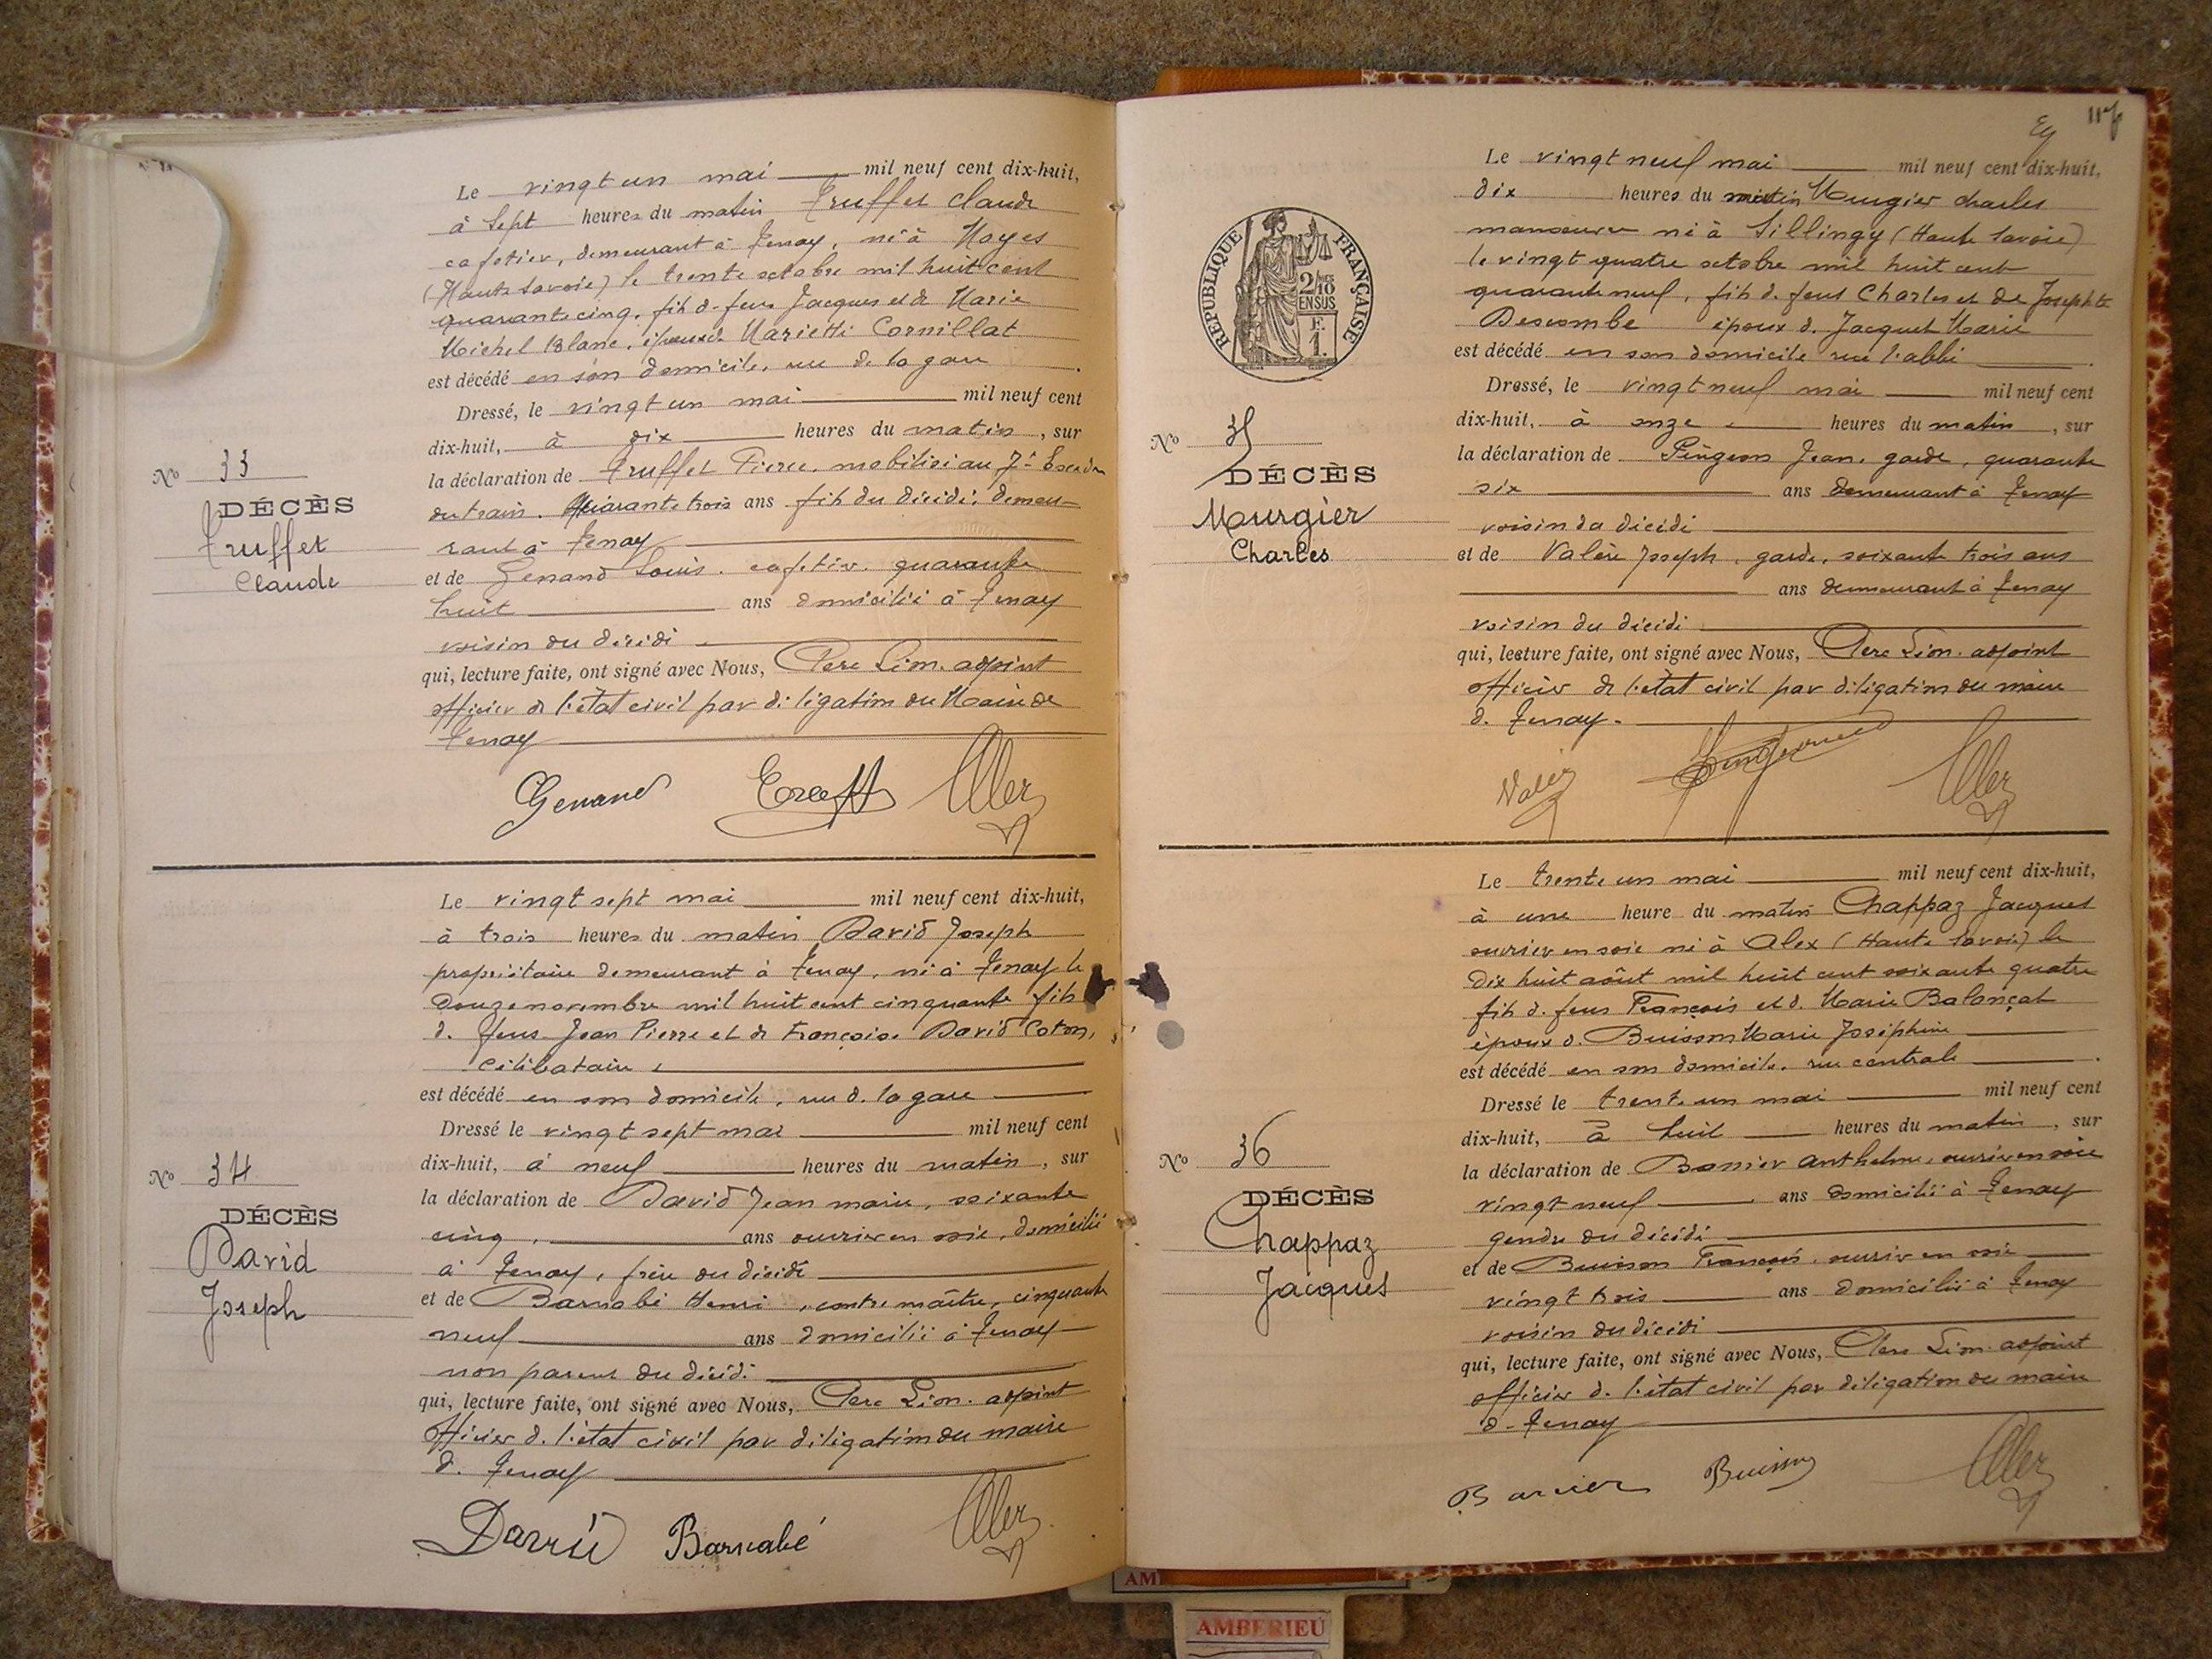 Le vingt un mai mil neuf cent dix-huit,
à sept heures du matin Truffet Claude
cafetier, demeurant à Tenay, né à Noyes
(Haute Savoie) le trente octobre mil huit cent
quarante cinq, fils de feus Jacques et de Marie
Michel Blanc, époux de Mariette Cornillat
est décédé en son domicile, rue de la gare
Dressé, le vingt un mai mil neuf cent
dix-huit, à dix heures du matin, sur
la déclaration de Truffet Pierre, mobilisé au 7e Escadron
du train. Quarante trois ans fils du décédé, demeu-
rant à Tenay
et de Genand Louis. cafetier. quarante
huit ans domicilié à Tenay
voisin du décédé
qui, lecture faite, ont signé avec Nous, Clerc Léon. adjoint
officier de l'état civil par délégation du Maire de
Tenay
Genand
No 33
DÉCÈS
Truffet
Claude
Le vingt sept mai mil neuf cent dix-huit,
à trois heures du matin David Joseph
propriétaire demeurant à Tenay, né à Tenay le
douze novembre mil huit cent cinquante fils
de feus Jean Pierre et de Françoise David Coton,
célibataire,
est décédé en son domicile, rue de la gare
Dressé le vingt sept mai mil neuf cent
dix-huit, à neuf heures du matin, sur
la déclaration de David Jean marie, soixante
cinq, ans ouvrier en soie, domicilié
à Tenay, frère du décédé
et de Barnabé Henri, contre maître, cinquante
neuf ans domicilié à Tenay
non parent du décédé
qui, lecture faite, ont signé avec Nous, Clerc Léon. adjoint
officier de l'état civil par délégation du maire
de Tenay
David Barnabé
No 34
DÉCÈS
David
Joseph
117
Le vingt neuf mai mil neuf cent dix-huit,
dix heures du matin Mourgier Charles
manoeuvre né à Sillingy (Haute Savoie)
le vingt quatre octobre mil huit cent
quarante neuf, fils de feus Charles et de Josephte
Descombe époux de Jacquet Marie
est décédé en son domicile rue l'abbé
Dressé, le vingt neuf mai mil neuf cent
dix-huit, à onze heures du matin, sur
la déclaration de Pingeon Jean, garde, quarante
six ans demeurant à Tenay
voisin du décédé
et de Valère Joseph, garde, soixante trois ans
ans demeurant à Tenay
voisin du décédé
qui, lecture faite, ont signé avec Nous, Clerc Léon. adjoint
officier de l'état civil par délégation du maire
de Tenay.
RÉPUBLIQUE FRANÇAISE
2/10 EN SUS
F. 1.
No 35
DÉCÈS
Mourgier
Charles
Le trente un mai mil neuf cent dix-huit,
à une heure du matin Chappaz Jacques
ouvrier en soie né à Alex (Haute Savoie) le
dix huit août mil huit cent soixante quatre
fils de feus François et de Marie Balançat
époux de Buisson Marie Joséphine
est décédé en son domicile, rue centrale
Dressé le trente un mai mil neuf cent
dix-huit, à huit heures du matin, sur
la déclaration de Banier Anthelme, ouvrier en soie
vingt neuf ans domicilié à Tenay
gendre du décédé
et de Buisson François, ouvrier en soie
vingt trois ans domicilié à Tenay
voisin du décédé
qui, lecture faite, ont signé avec Nous, Clerc Léon. adjoint
officier de l'état civil par délégation du maire
de Tenay
Buisson
No 36
DÉCÈS
Chappaz
Jacques
AMBERIEU